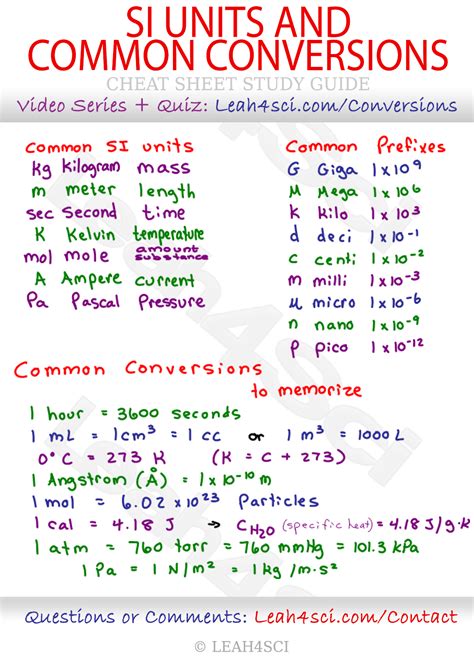 SI UNITS AND
COMMON CONVERSIONS
CHEAT SHEET STUDY GUIDE
Video Series + Quiz: Leah4sci.com/Conversions
Common SI units
kg kilogram mass
m meter length
sec Second time
K Kelvin temperature
mol mole amount substance
A Ampere current
Pa Pascal Pressure
Common Prefixes
G Giga 1 x 10⁹
M Mega 1 x 10⁶
k kilo 1 x 10³
d deci 1 x 10⁻¹
c centi 1 x 10⁻²
m milli 1 x 10⁻³
μ micro 1 x 10⁻⁶
n nano 1 x 10⁻⁹
p pico 1 x 10⁻¹²
Common Conversions
to memorize
1 hour = 3600 seconds
1 mL = 1cm³ = 1 cc or 1 m³ = 1000 L
0°C = 273 K (K = C + 273)
1 Angstrom (Å) = 1 x 10⁻¹⁰ m
1 mol = 6.02 x 10²³ Particles
1 cal = 4.18 J → C H₂O (specific heat) = 4.18 J/g·K
1 atm = 760 torr = 760 mmHg = 101.3 kPa
1 Pa = 1 N/m² = 1 kg/m·s²
Questions or Comments: Leah4sci.com/Contact
© LEAH4SCI
Leah4Sci